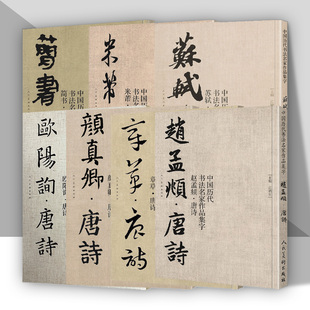 簡書
中国历代
书法名家作品集字
简书·
米芾
中国历代
书法名家作品集字
米芾·
蘇軾
中国历代
书法名家作品集字
苏轼·
歐陽詢·唐詩
欧阳询·唐诗
顏真卿·唐詩
章草·唐詩
章草·唐诗
趙孟頫·唐詩
中国历代
书法名家作品集字
赵孟頫·唐诗
中国历代书法名家作品集字
趙孟頫
唐詩
人民美術出版社